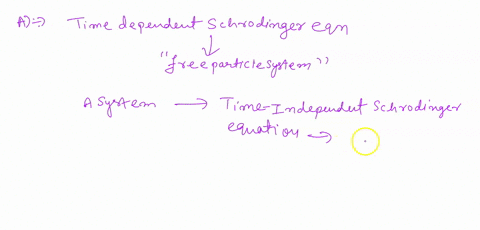 A) ⇒ Time dependent Schrodinger eqn
↓
"free particle system"
A System → Time-Independent Schrodinger
equation →